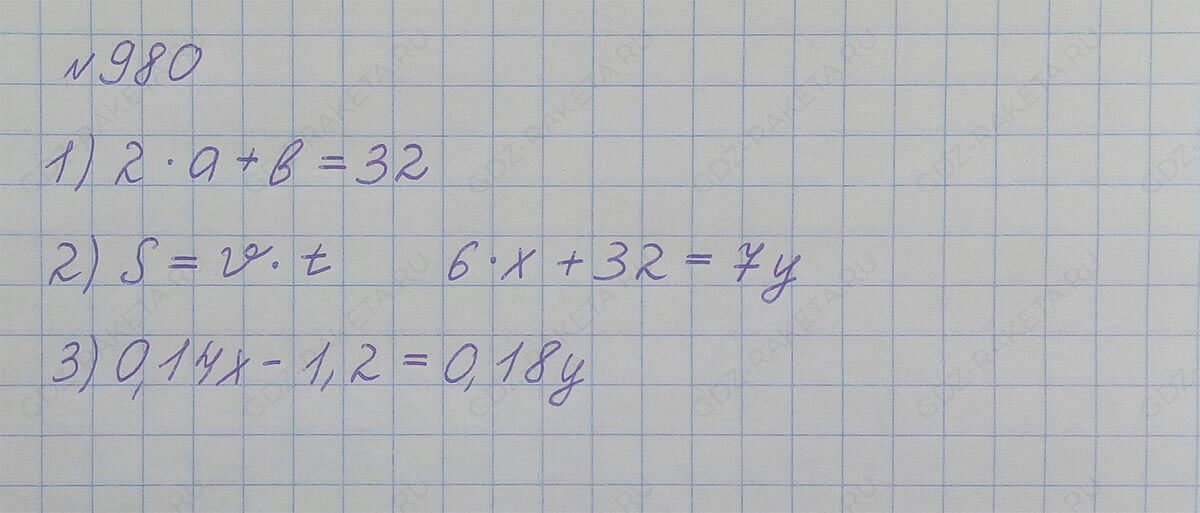 №980
1) 2·a+b=32
2) S=v·t 6·x+32=7y
3) 0,14x-1,2=0,18y
GDZ-RAKETA.RU